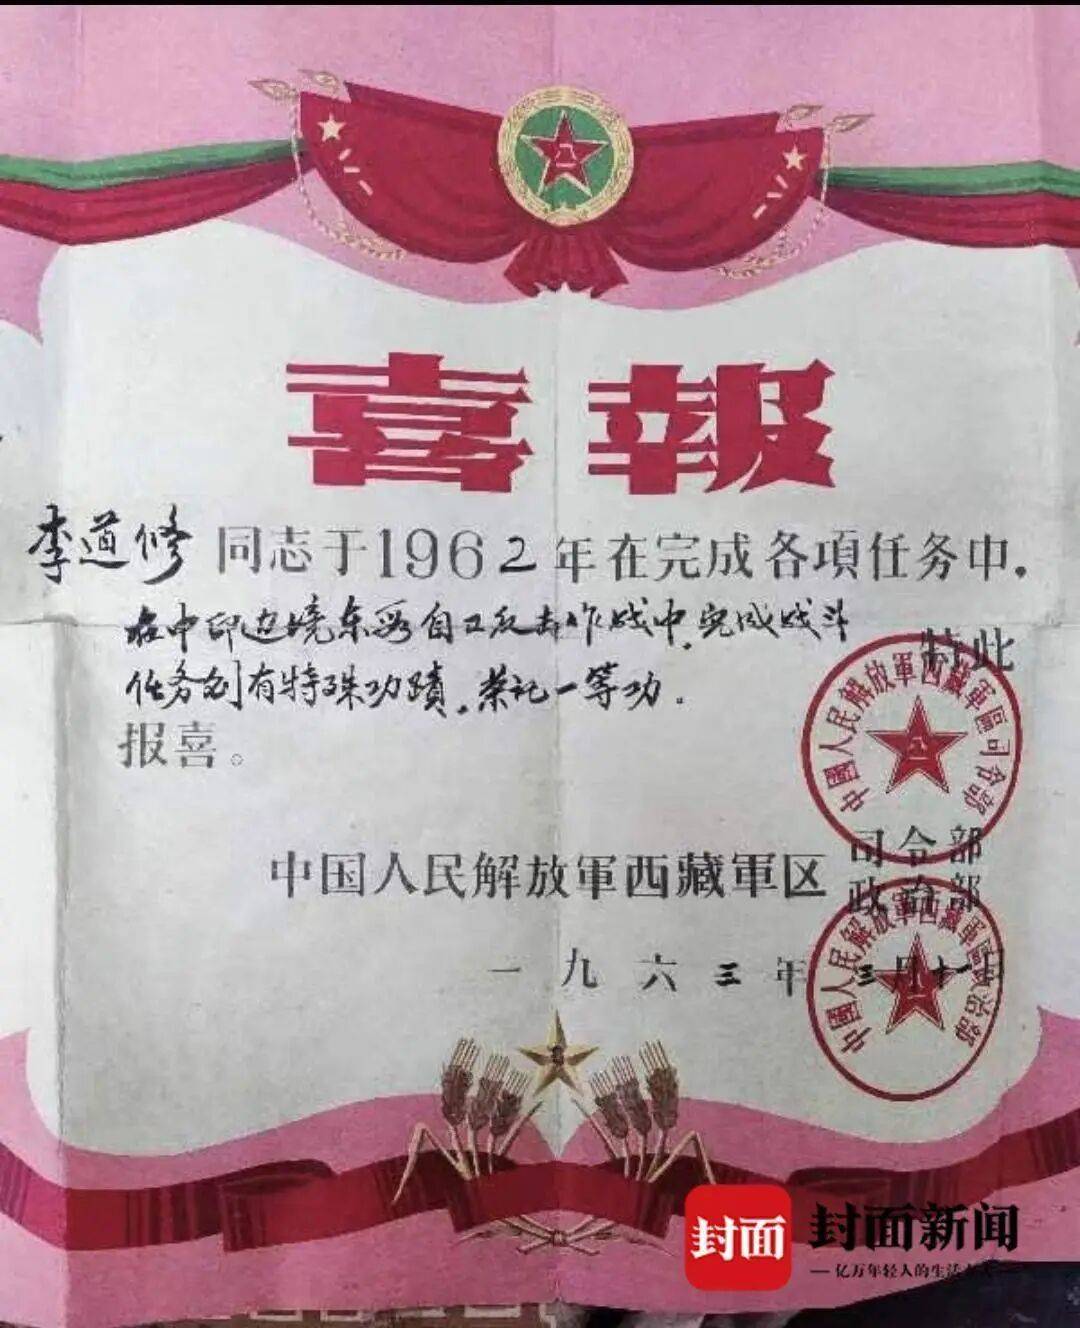 喜報
李道修 同志于1962年在完成各項任务中，
在中印边境东段自卫反击作战中，完成战斗
任务创有特殊功蹟，荣记一等功。
特此
报喜。
中国人民解放軍西藏軍区 司令部
政治部
一九六三年三月十一日
中國人民解放軍西藏軍區司令部
中國人民解放軍西藏軍區政治部
封面 封面新闻
亿万年轻人的生活方式